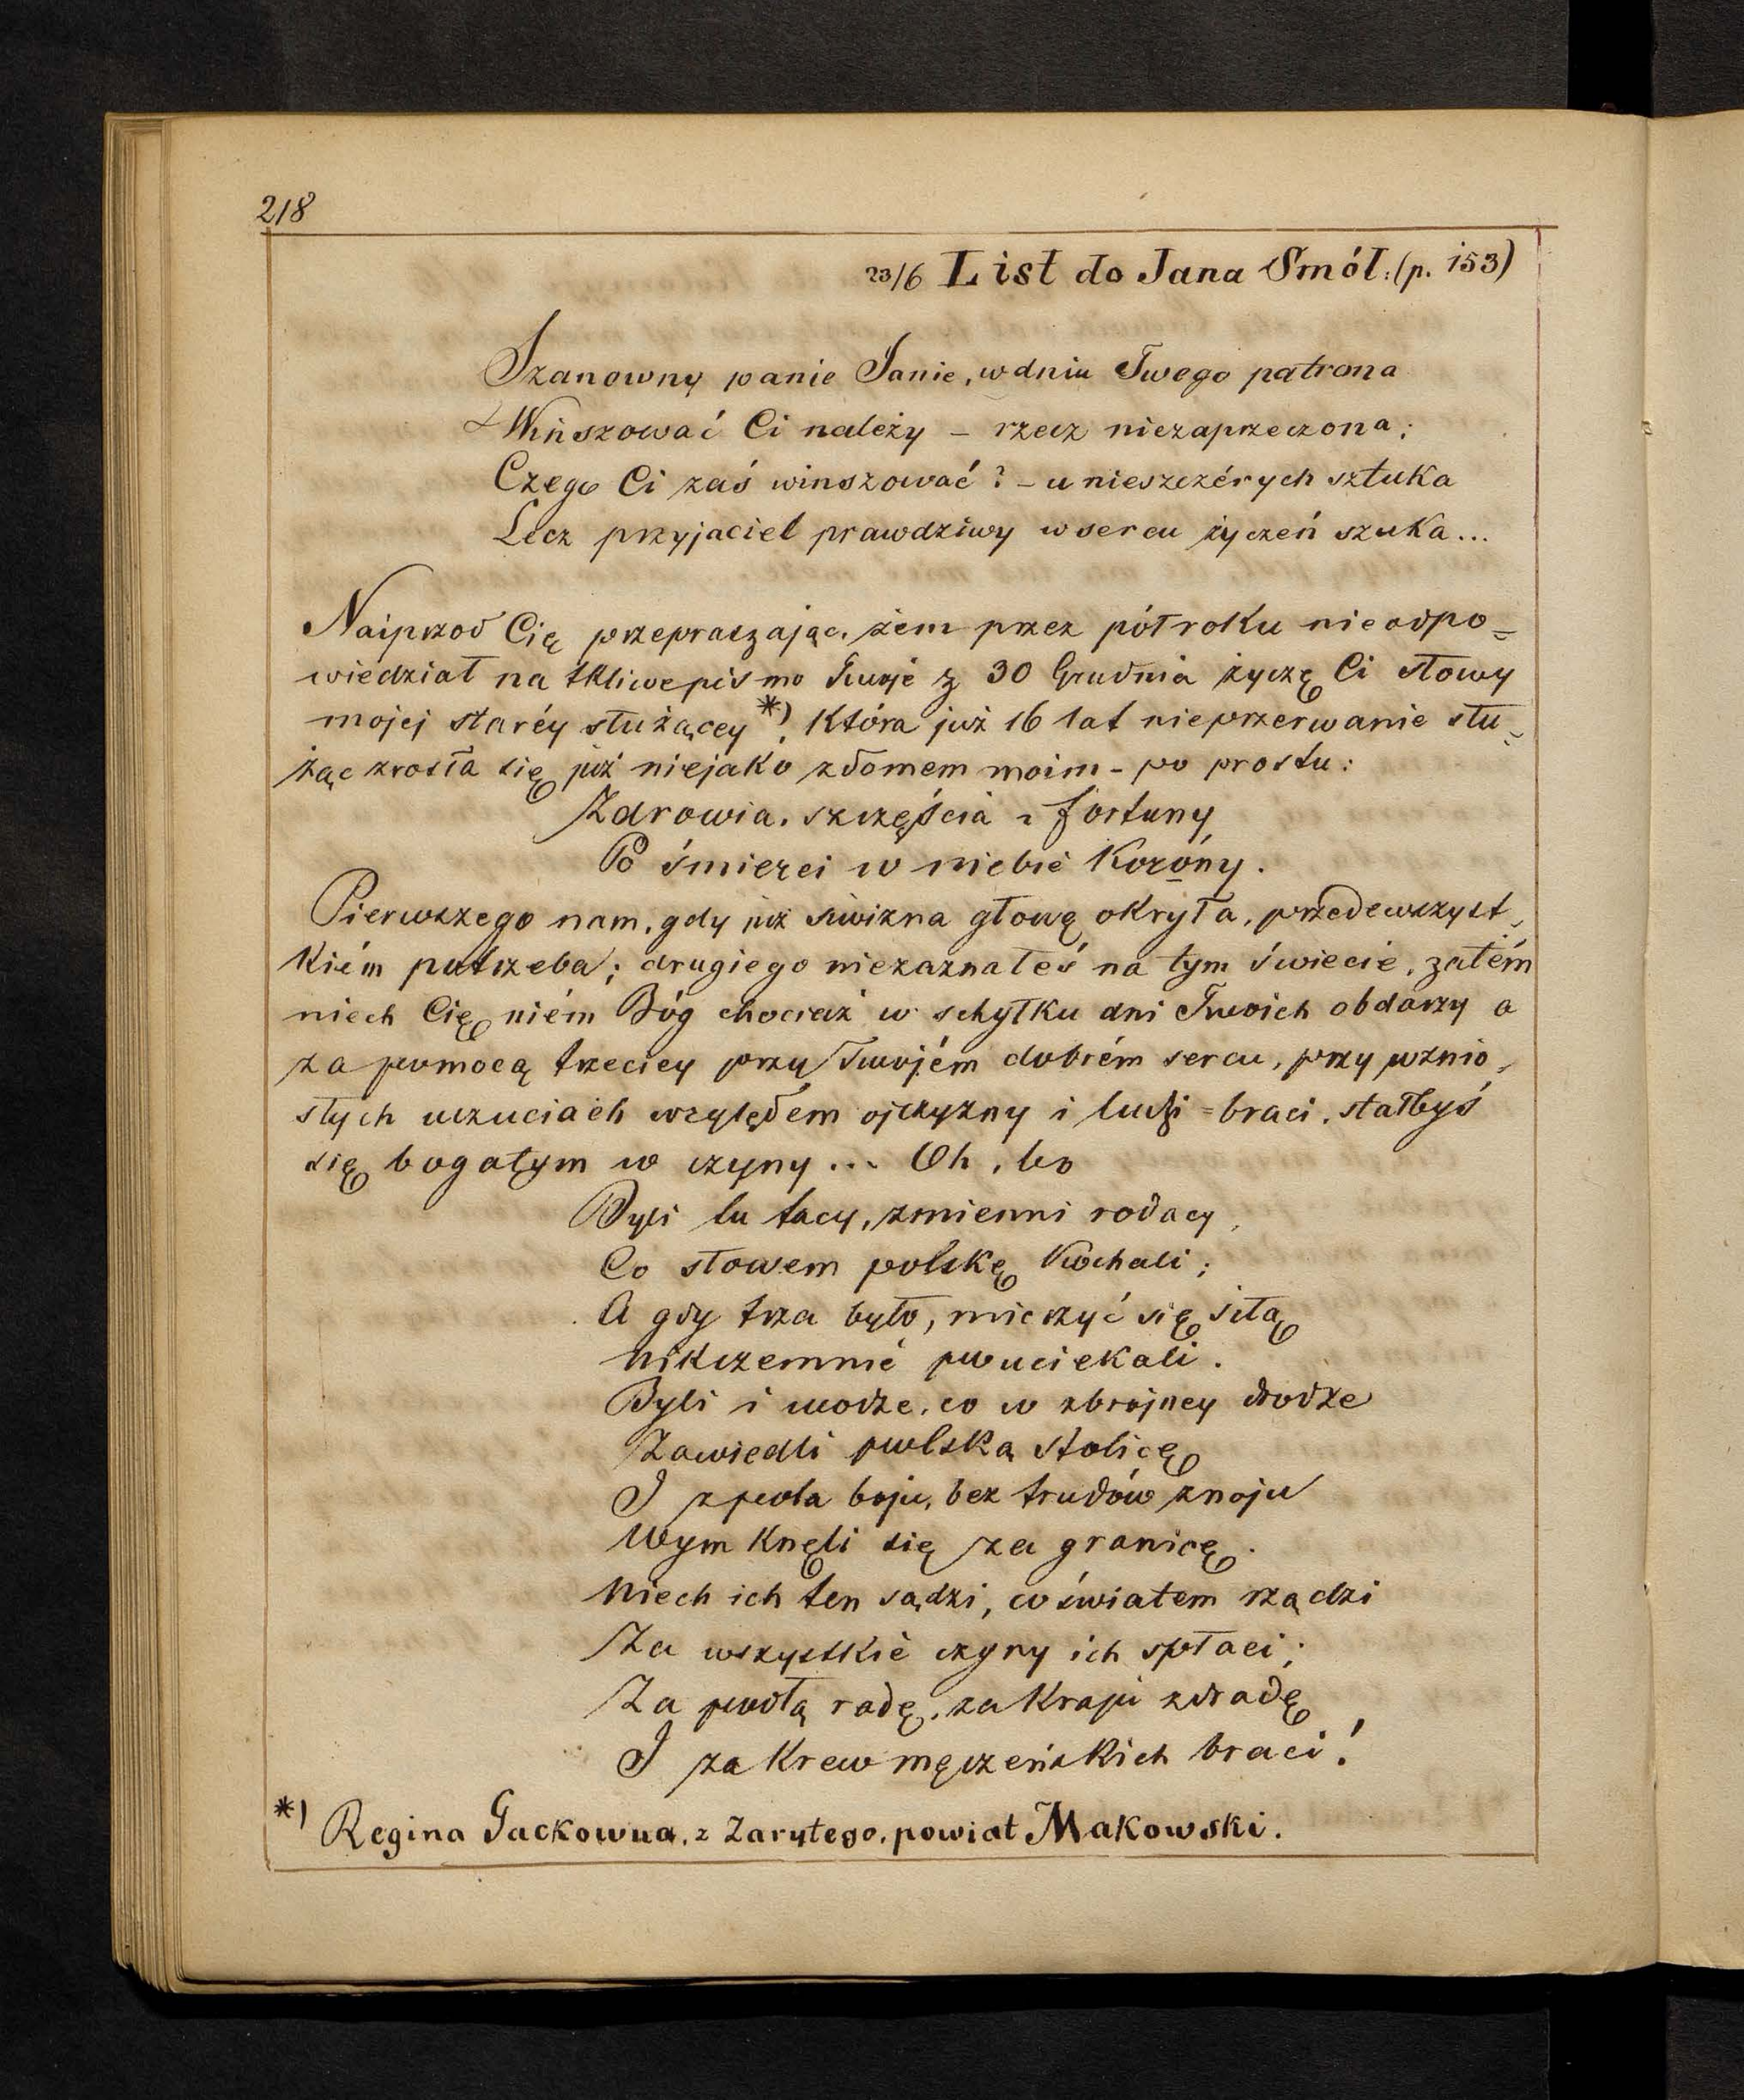 218
23/6 List do Jana Smół: (p. 153)
Szanowny panie Janie, w dniu Twego patrona
Winszować Ci należy – rzecz niezaprzeczona;
Czego Ci zaś winszować? – u nieszczérych sztuka
Lecz przyjaciel prawdziwy w sercu życzeń szuka...
Naiprzod Cię przepraszając, żem przez półroku nieodpo=
wiedział na tkliwe pismo Twoje z 30 Grudnia życzę Ci słowy
mojej staréy służącey *), która już 16 lat nieprzerwanie słu=
żąc zrosła się już niejako z domem moim – po prostu:
Zdrowia, szczęścia i fortuny
Po śmierci w niebie koróny.
Pierwszego nam, gdy już siwizna głowę okryła, przedewszyst=
kiém potrzeba; drugiego niezaznałeś na tym świecie, zatém
niech Cię niém Bóg chociaż w schyłku dni Twoich obdarzy a
za pomocą trzeciey przy Twojém dobrém sercu, przy wznio=
słych uczuciach względem ojczyzny i ludzi=braci, stałbyś
się bogatym w czyny... Oh, bo
Byli tu tacy, zmienni rodacy,
Co słowem polskę kochali;
A gdy trza było, mierzyć się siłą
nikczemnie pouciekali.
Byli i wodze, co w zbrojney drodze
Zawiedli polską stolicę
I z pola boju, bez trudów znoju
Wymknęli się za granicę.
Niech ich ten sądzi, co światem rządzi
Za wszystkie czyny ich spłaci;
Za podłą radę, za kraju zdradę
I za krew męczeńskich braci!
*) Regina Gackowna, z Zarytego, powiat Makowski.